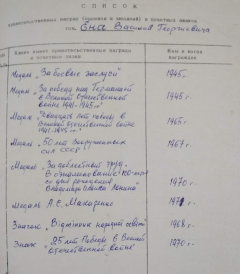 СПИСОК
правительственных наград (орденов и медалей) и почетных знаков
тов. Ена Василия Георгиевича
Какие имеет правительственные награды
и почетные знаки
Кем и когда
награжден
Медаль „За боевые заслуги"
1945г.
Медаль „За победу над Германией
в Великой Отечественной
войне 1941-1945гг."
1945г.
Медаль „Двадцать лет победы в
Великой Отечественной войне
1941-1945гг."
1965г.
Медаль „50 лет Вооруженных
сил СССР"
1967г.
Медаль „За доблестный труд.
В ознаменование 100-летия
со дня рождения
Владимира Ильича Ленина"
1970г.
Медаль А.С. Макаренко
Значок „Відмінник народної освіти"
1968г.
Знак „25 лет Победы в Великой
отечественной войне"
1970г.